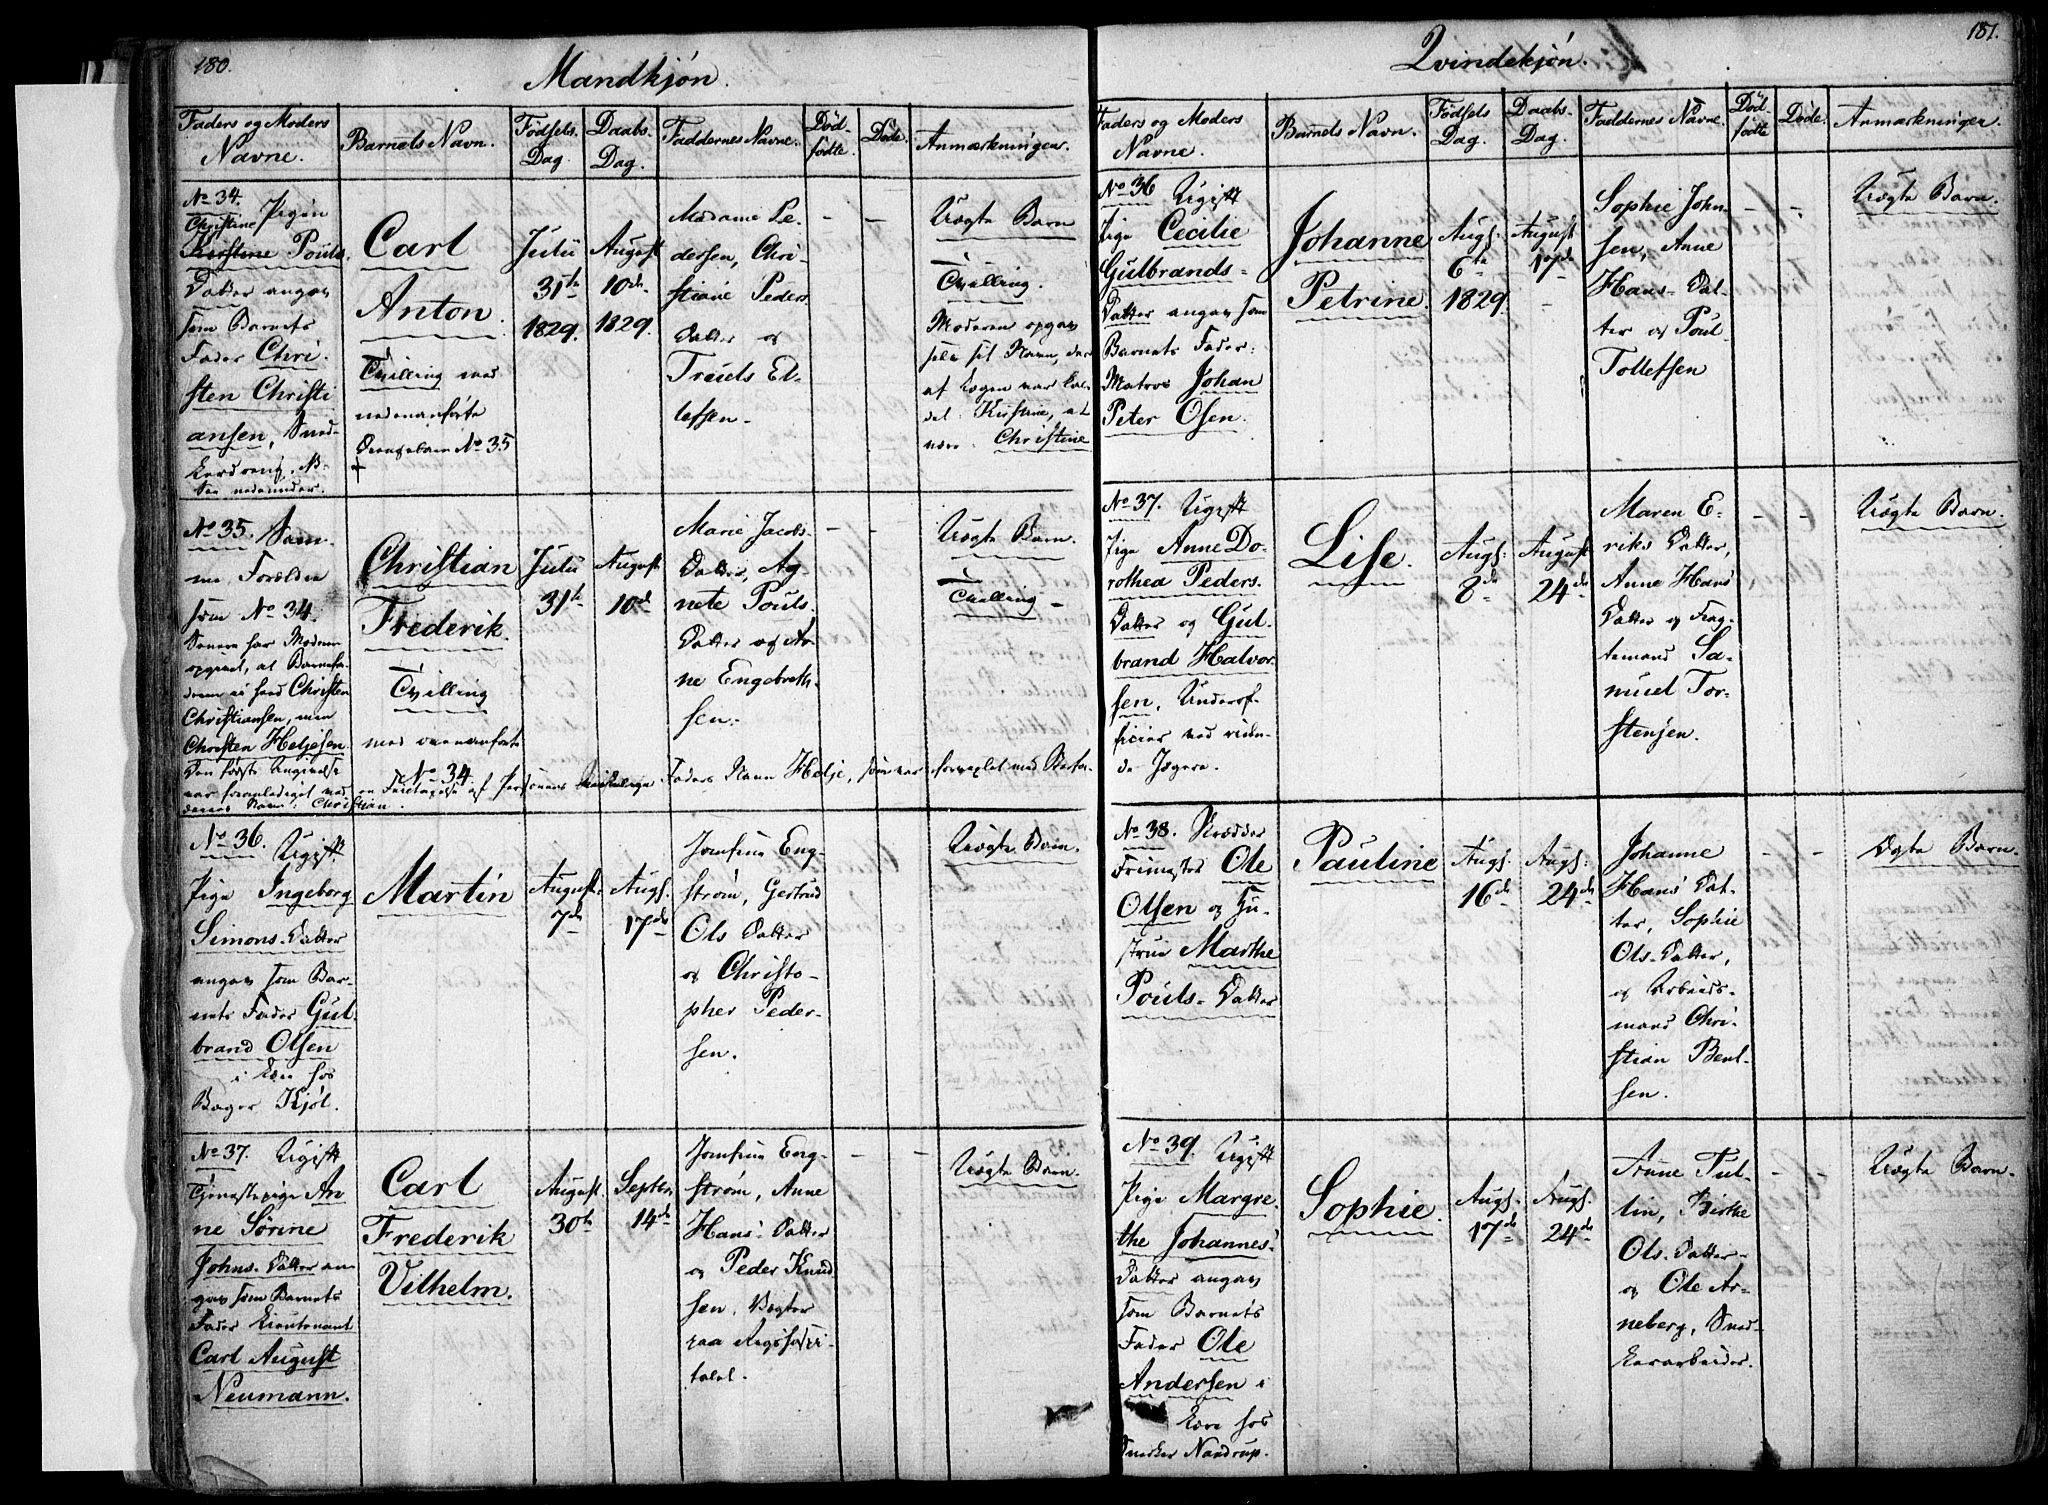 180.
Mandkjøn.
Faders og Moders
Navne.
Barnets Navn.
Fødsels
Dag
Daabs
Dag.
Faddernes Navne.
Død-
fødte.
Døde.
Anmærkninger.
No 34.
Christine Pigen
Kirstine Pouls
Datter angav
som Barnets
Fader Chri-
sten Christi
ansen, Sned-
kersvend. NB
See nedenunder.
Carl
Anton.
Tvilling med
nedenanførte
Drengebarn No 35
Julii
31te
1829.
August
10de
1829.
Madame Pe-
dersen, Chri-
stiane Peders
Datter og
Truels El-
lefsen.
Uægte Barn
Tvilling.
Moderen opgav
selv sit Navn, der
af Lægen var kal-
det Kirstine, at
være Christine
No 35. Sam-
me Forældre
som No 34.
Senere har Moderen
opgivet, at Barnefa-
deren ei hed Christen
Christiansen, men
Christen Heljesen.
Den første Angivelse
var foranlediget ved
Christian
Christian
Frederik.
Tvilling
med ovenanførte
No 34.
Faders Navn Helje, som var forvexlet med
Julii
31te
August
10de
Marie Jacobs
Datter, Ag-
nete Pouls
Datter og Ar-
ne Engebreth-
sen.
Uægte Barn.
Tvilling
No 36. Ugift
Pige Ingeborg
Simons-Datter
angav som Bar-
nets Fader Gul-
brand Olsen
i Lære hos
Bager Kjøl.
Martin
August.
7de
Augs.
17de
Jomfrue Eng-
strøm, Gertrud
Ols Datter
og Christo-
pher Peder-
sen.
Uægte Barn.
No 37. Ugift
Tjenestepige An-
ne Sørine
Johns-Datter an-
gav som Barnets
Fader Lieutenant
Carl August
Neumann.
Carl
Frederik
Vilhelm.
August.
30te
Septbr.
14de
Jomfrue Eng-
strøm, Anne
Hans' Datter
og Peder Knud
sen, Vægter
paa Rigshospi-
talet.
Uægte Barn.
181.
Qvindekjøn.
Faders og Moders
Navne.
Barnets Navn.
Fødsels
Dag.
Daabs-
Dag.
Faddernes Navne.
Død
fødte
Døde.
Anmærkninger.
No 36 Ugift
Pige Cecilie
Gulbrands-
Datter angav som
Barnets Fader:
Matros Johan
Peter Olsen.
Johanne
Petrine.
Augs.
6te
1829.
August
17de
Sophie John-
sen, Anne
Hans-Dat-
ter og Poul
Tollefsen
Uægte Barn.
No 37. Ugift
Pige Anne Do-
rothea Peders.
Datter og Gul-
brand Halvor-
sen, Underof-
ficier ved riden-
de Jægere.
Lise.
Augs.
8de
August
24de
Maren E-
riks Datter,
Anne Hans'
Datter og Frag-
temand Sa-
muel Tor-
stensen.
Uægte Barn.
No 38. Skrædder
Frimester Ole
Olsen og Hu-
strue Marthe
Pouls-Datter
Pauline
Augs.
16de
Augs.
24de
Johanne
Hans' Dat-
ter, Sophie
Ols-Datter,
og Arbeids-
mand Chri-
stian Bent-
sen.
Ægte Barn.
No 39. Ugift
Pige Margre
the Johannes'
Datter angav
som Barnets
Fader Ole
Andersen i
Lære hos
Snedker Nordrup.
Sophie.
Augs.
17de
Augs.
24de
Anne Tul-
lin, Birthe
Ols-Datter
og Ole Ar-
neberg, Sned-
kerarbeider.
Uægte Barn.